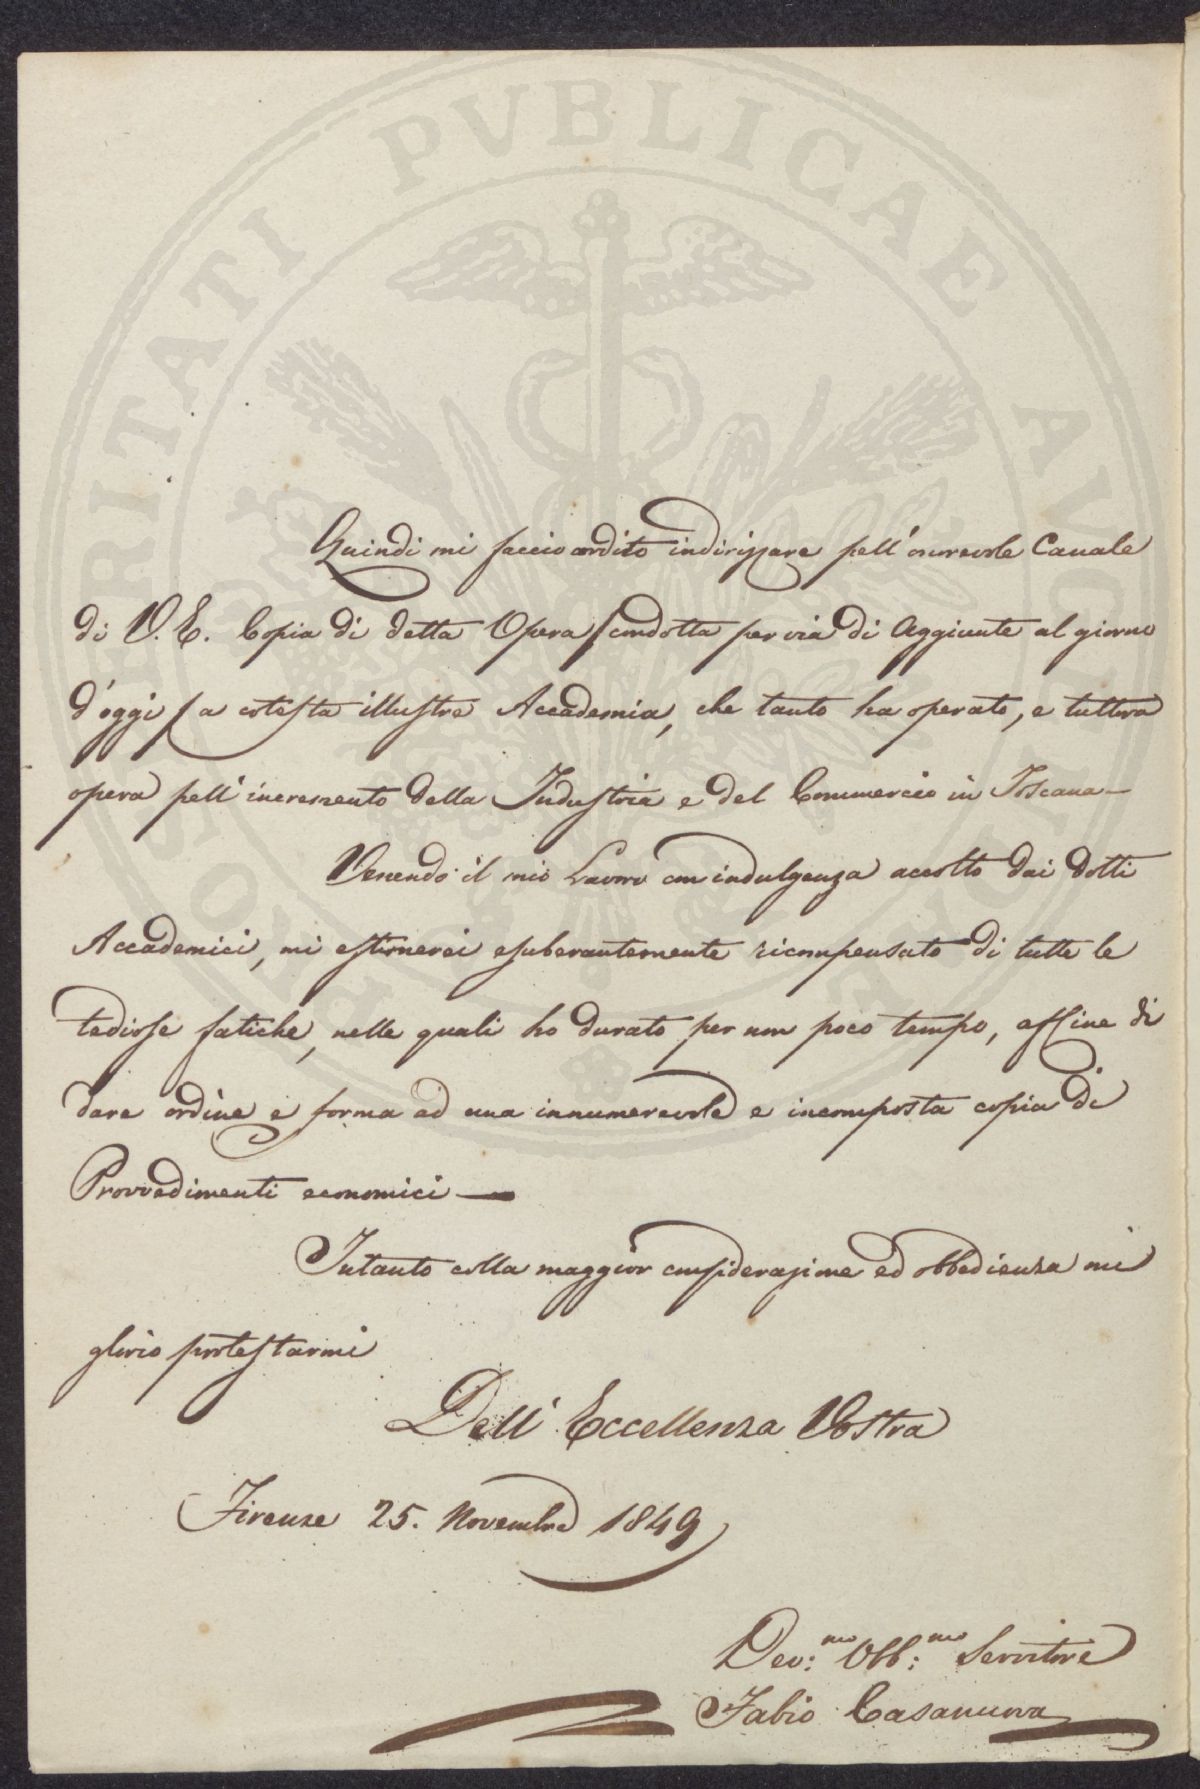 Quindi mi faccio ardito indirizzare pell' onorevole Canale
di V. E. Copia di detta Opera (condotta per via di Aggiunte al giorno
d'oggi) a cotesta illustre Accademia, che tanto ha operato, e tuttora
opera pell' incremento della Industria e del Commercio in Toscana —
Venendo il mio Lavoro con indulgenza accolto dai dotti
Accademici, mi estimerei esuberantemente ricompensato di tutte le
tediose fatiche, nelle quali ho durato per non poco tempo, affine di
dare ordine e forma ad una innumerevole e incomposta copia di
Provvedimenti economici —
Intanto colla maggior considerazione ed obbedienza mi
glorio protestarmi
Dell' Eccellenza Vostra
Firenze 25. Novembre 1849
Dev:mo Obb:mo Servitore
Fabio Casanuova
PROSPERITATI PVBLICAE AVGENDAE